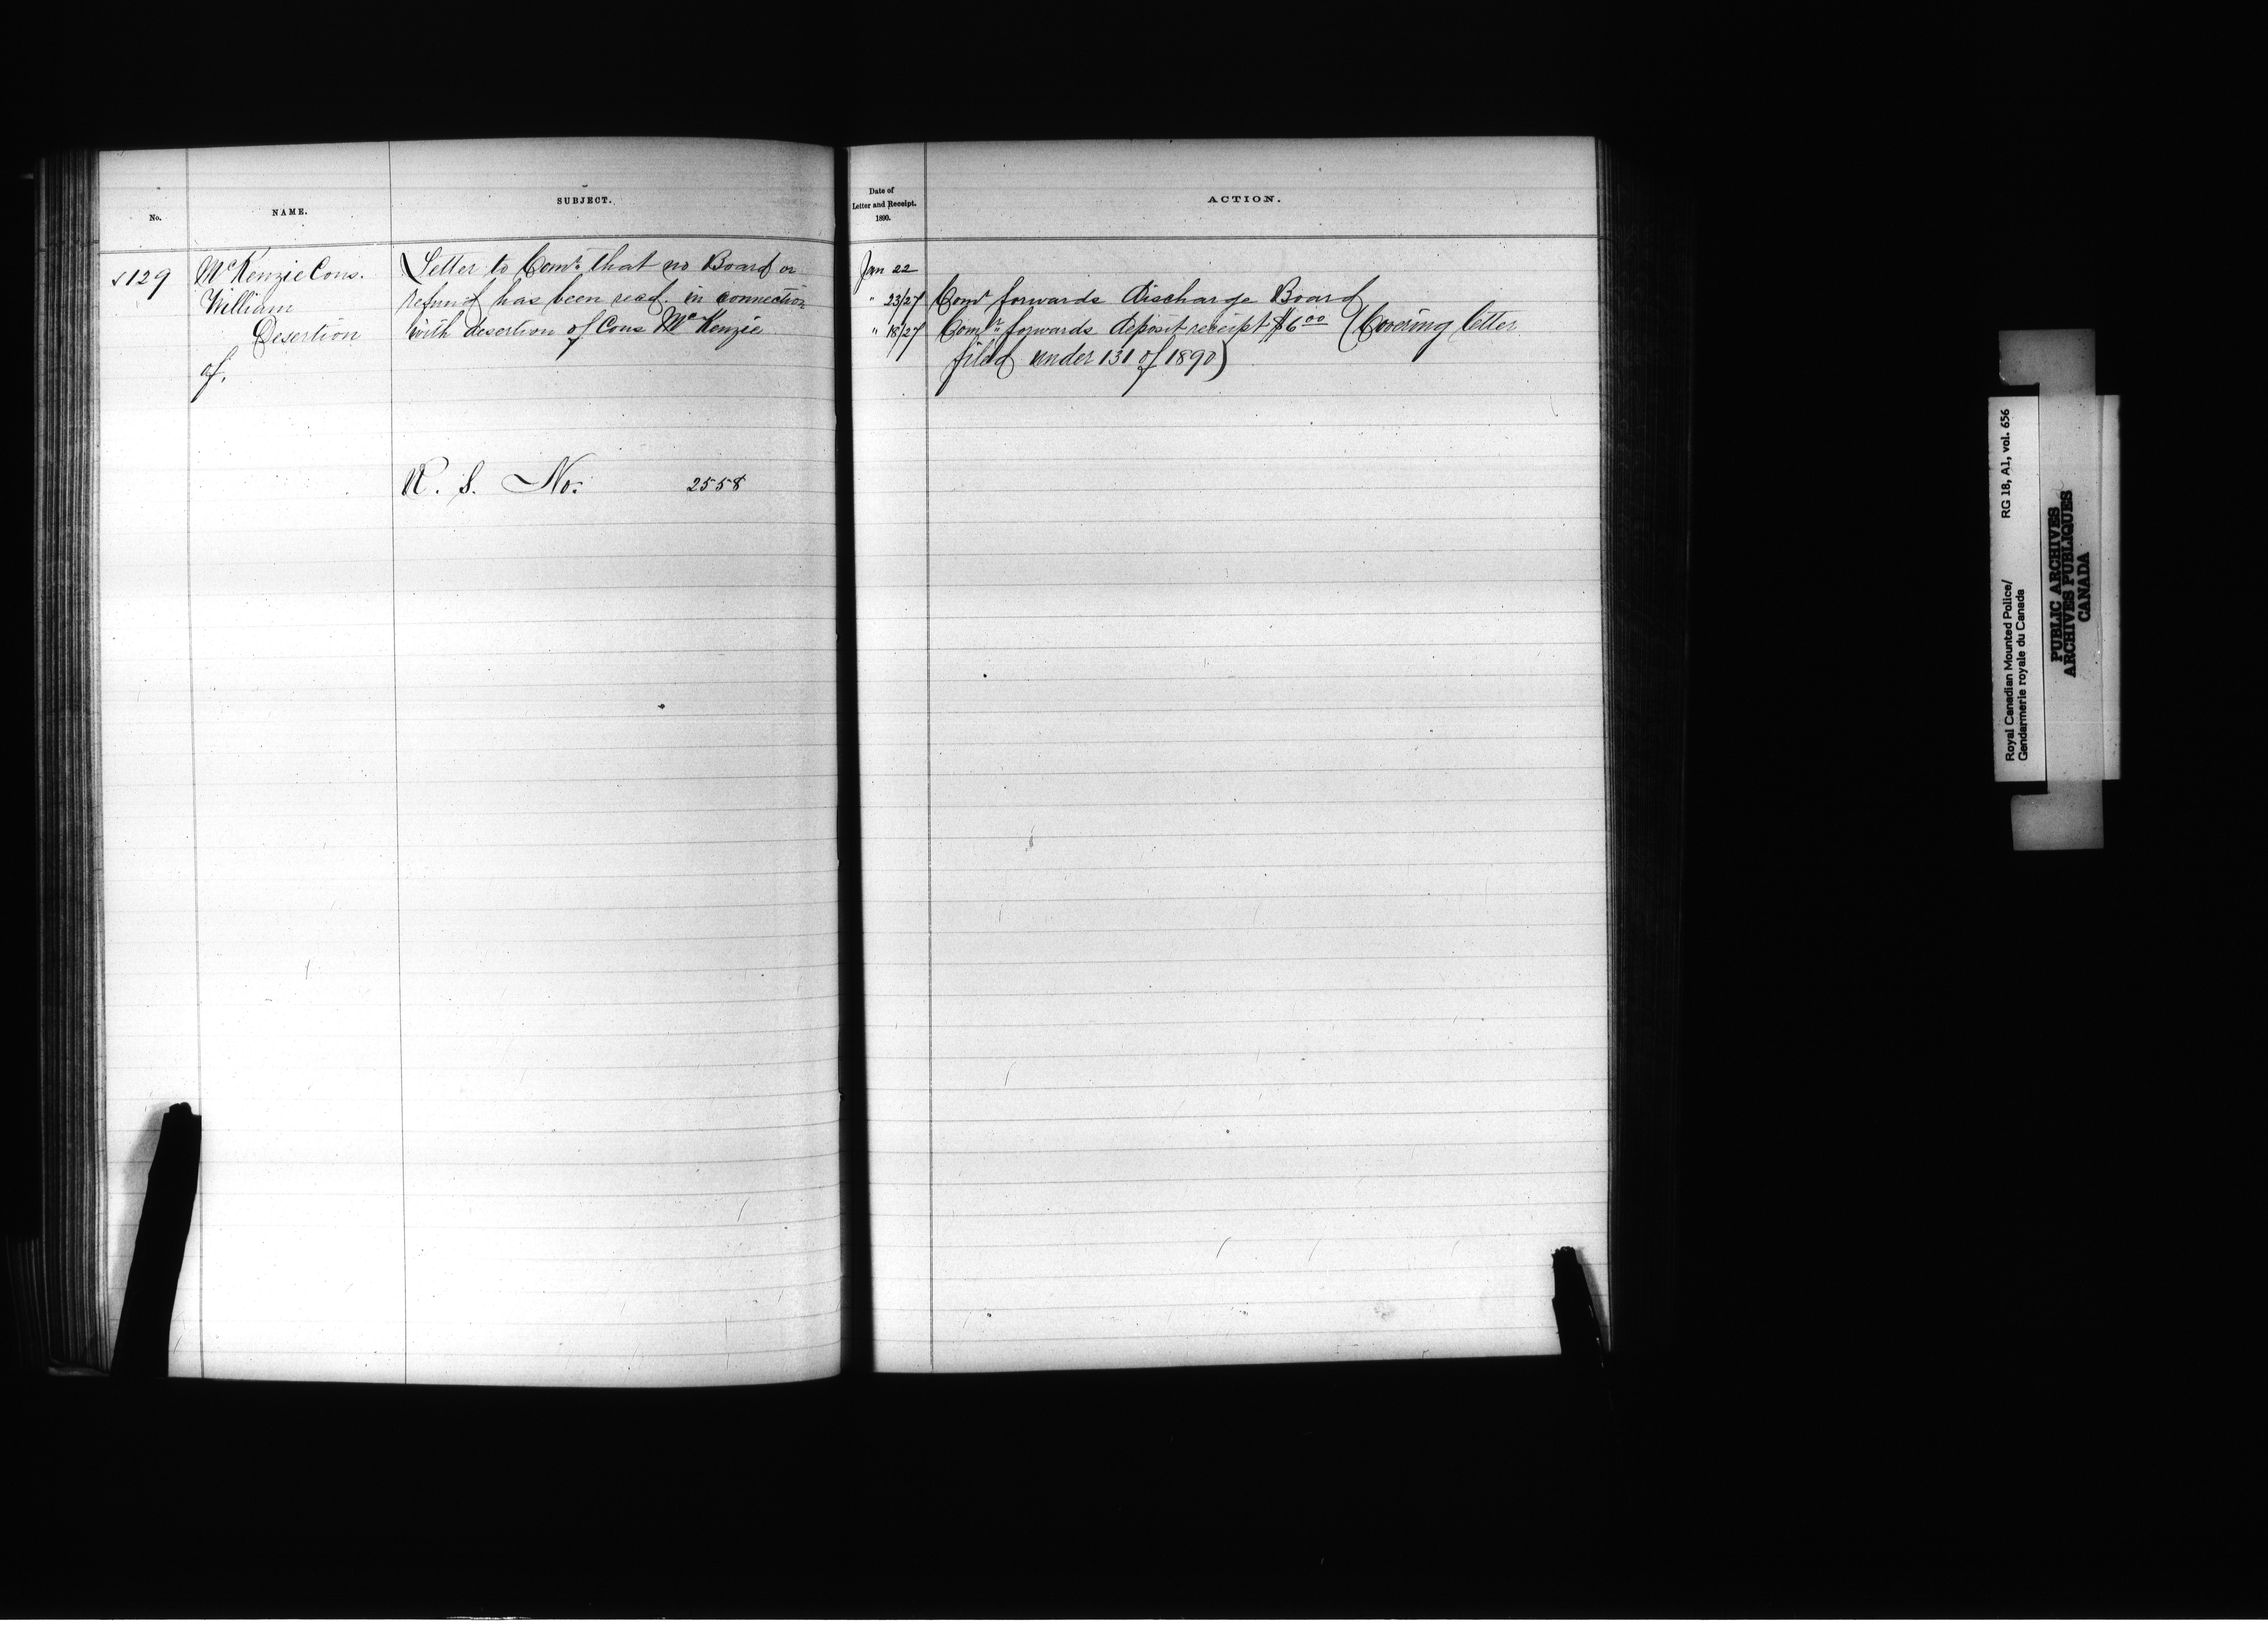 No.
NAME.
SUBJECT.
✓129
McKenzie Cons.
William
Desertion
of.
Letter to Comr. that no Board or
refund has been recd. in connection
with desertion of Cons McKenzie
R. S. No. 2558
Date of
Letter and Receipt.
1890.
ACTION.
Jan 22
" 23/27 Comr forwards Discharge Board
" 18/27 Comr forwards deposit receipt $6.00 (Covering letter
filed under 131 of 1890)
Royal Canadian Mounted Police/ RG 18, A1, vol. 656
Gendarmerie royale du Canada
PUBLIC ARCHIVES
ARCHIVES PUBLIQUES
CANADA